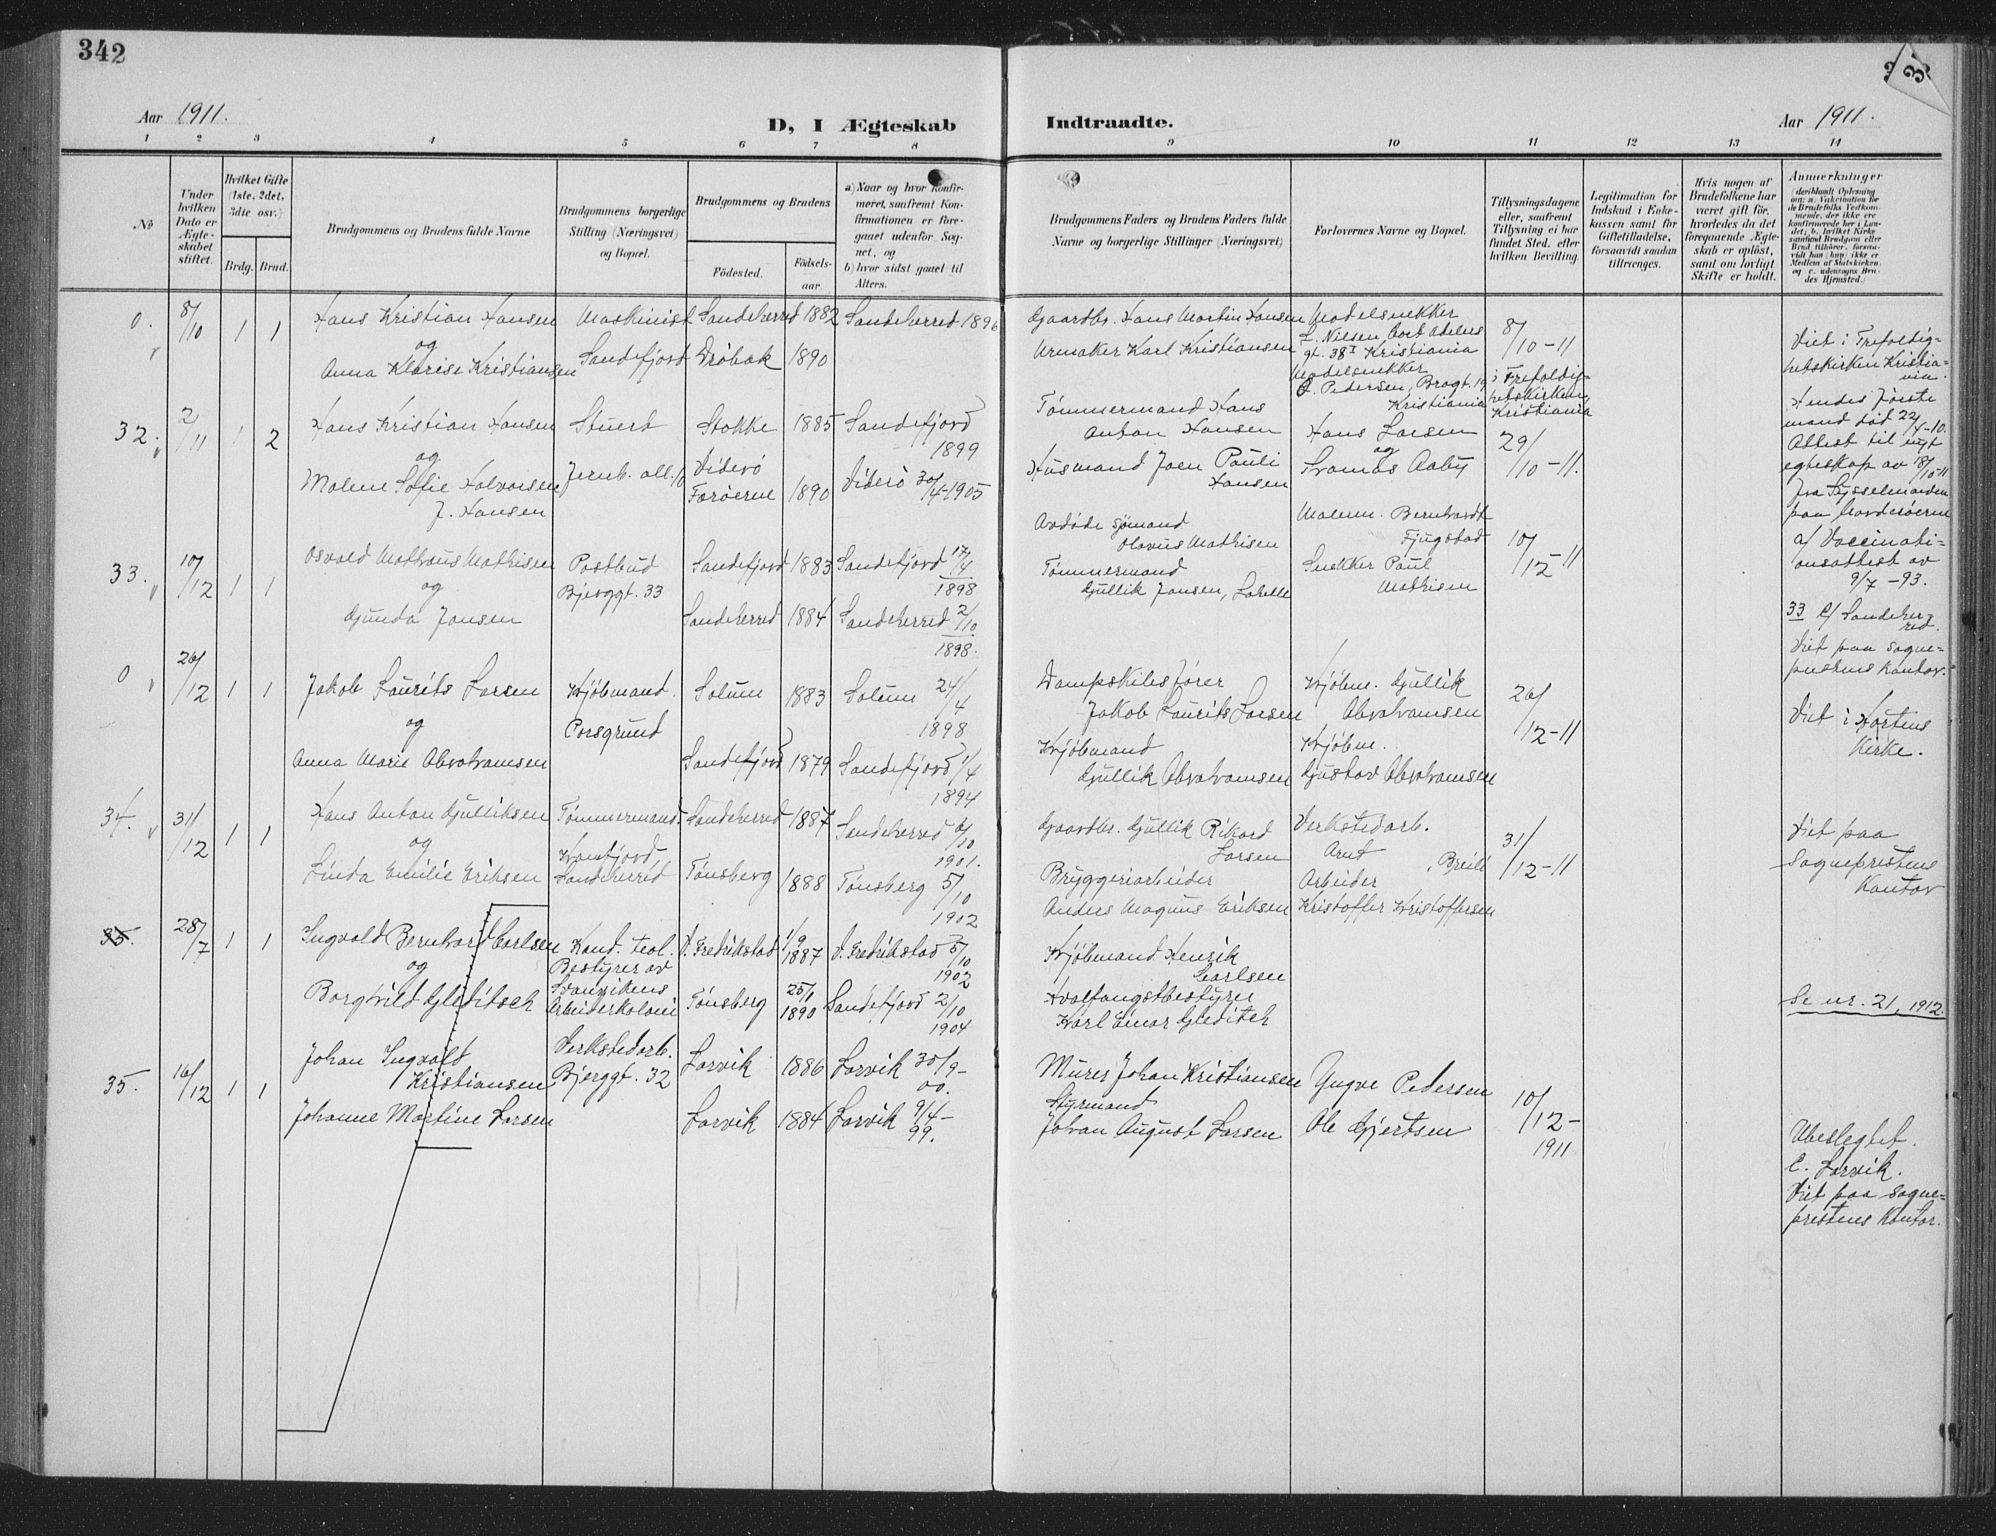 342
Aar 1911.
D, I Ægteskab
Indtraadte.
Aar 1911.
1 2 3 4 5 6 7 8 9 10 11 12 13 14
No
Under hvilken Dato er Ægteskabet stiftet.
Hvilket Gifte (1ste, 2det, 3die osv.)
Brdg. Brud.
Brudgommens og Brudens fulde Navne
Brudgommens borgerlige Stilling (Næringsvei) og Bopæl.
Brudgommens og Brudens
Fødested.
Fødsels-aar.
a) Naar og hvor Konfirmeret, saafremt Konfirmationen er foregaaet udenfor Sognet, og
b) hvor sidst gaaet til Alters.
Brudgommens Faders og Brudens Faders fulde Navne og borgerlige Stillinger (Næringsvei)
Forlovernes Navne og Bopæl.
Tillysningsdagene eller, saafremt Tillysning ei har fundet Sted, efter hvilken Bevilling.
Legitimation for Indskud i Enkekassen samt for Giftetilladelse, forsaavidt saadan tiltrænges.
Hvis nogen af Brudefolkene har været gift før, hvorledes da det foregaaende Ægteskab er opløst, samt om lovligt Skifte er holdt.
Anmerkninger
0. 8/10 1 1 Hans Kristian Hansen Maskinist Sandeherred 1882 Sandeherred 1896
og Sandefjord
Anna Klarise Kristiansen Drøbak 1890
Gaardbr. Hans Martin Hansen
Urmaker Karl Kristiansen
Modelsnekker
L. Nielsen, Cort Adelers
gt. 38 I Kristiania
Modelsnekker
O. Pedersen, Brogt. 19
Kristiania
8/10-11
i Trefoldig-
hetskirken,
Kristiania
Viet i Trefoldig-
hetskirken Kristia-
nia.
32. 2/11 1 2 Hans Kristian Hansen Stuert Stokke 1885 Sandefjord
og 1899
Malene Sofie Halvorsen Jernb. all. 10 Viderø
f. Hansen Færøerne 1890 Viderø 30/4-1905
Tømmermand Hans
Anton Hansen
Husmand Joen Pauli
Hansen
Hans Larsen
og
Tromas Aaby
29/10-11.
Hendes første
mand død 22/4-10.
Attest til nyt
egteskap av 18/10-11
fra Sysselmanden
paa Norderøerne
33. 10/12 1 1 Osvald Mathæus Mathisen Postbud Sandefjord 1883 Sandefjord 17/4
og Bjerggt. 33 1898
Gunda Jansen Sandeherred 1884 Sandeherred 2/10
1898.
Avdøde sjømand
Olavus Mathisen
Tømmermand
Gullik Jansen, Lahelle
Malerm. Bernhardt
Fjugstad
Snekker Paul
Mathisen
10/12-11
a/ Vaccinati-
onsattest av
9/7-93.
33 c/ Sandeher-
red.
0 26/12 1 1 Jakob Laurits Larsen Kjøbmand. Solum 1883 Solum 24/4
og Porsgrund 1898
Anna Marie Abrahamsen Sandefjord 1879 Sandefjord 1/4
1894
Dampskibsfører
Jakob Laurits Larsen
Kjøbmand
Gullik Abrahamsen
Kjøbm. Gullik
Abrahamsen
Kjøbm.
Gustav Abrahamsen
26/12-11
Viet paa sogne-
prestens kontor.
Viet i Hortens
Kirke.
34. 31/12 1 1 Hans Anton Gulliksen Tømmermand. Sandeherred 1887 Sandeherred 6/10
og 1901.
Linda Emilie Eriksen Sandeherred Tønsberg 1888 Tønsberg 5/10
1902
Gaardbr. Gullik Rikard
Larsen
Bryggeriarbeider
Anders Magnus Eriksen
Verkstedarb.
Arnt
Arbeider
Kristoffer Kristoffersen
31/12-11
Viet paa
Sogneprestens
Kontor
35. 28/7 1 1 Ingvald Bernhard Carlsen Kand. teol. V. Fredrikstad 1/9 1887 V. Fredrikstad 5/10
og Bestyrer av 1902
Borghild Gleditsch Svanvikens Arbeiderkoloni Tønsberg 25/1 1890 Sandefjord 2/10
1904
Kjøbmand Henrik
Carlsen
Hvalfangstbestyrer
Karl Einar Gleditch
Se nr. 21, 1912.
35. 16/12 1 1 Johan Ingvalt Verkstedarb. Larvik 1886 Larvik 30/9-
Kristiansen Bjerggt. 32 00.
Johanne Martine Larsen Larvik 1884 Larvik 9/4-
99.
Murer Johan Kristiansen
Styrmand
Johan August Larsen
Yngve Pedersen
Ole Gjertsen
10/12-
1911
Ubeslegtet.
c. Larvik.
Viet paa Sogne-
prestens Kontor.